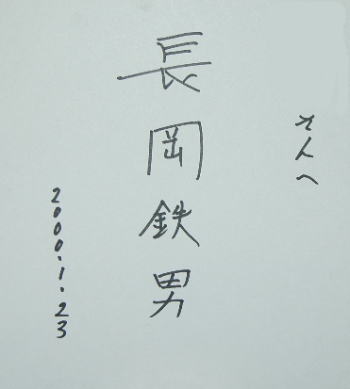 人へ
長岡鉄男
2000.1.23